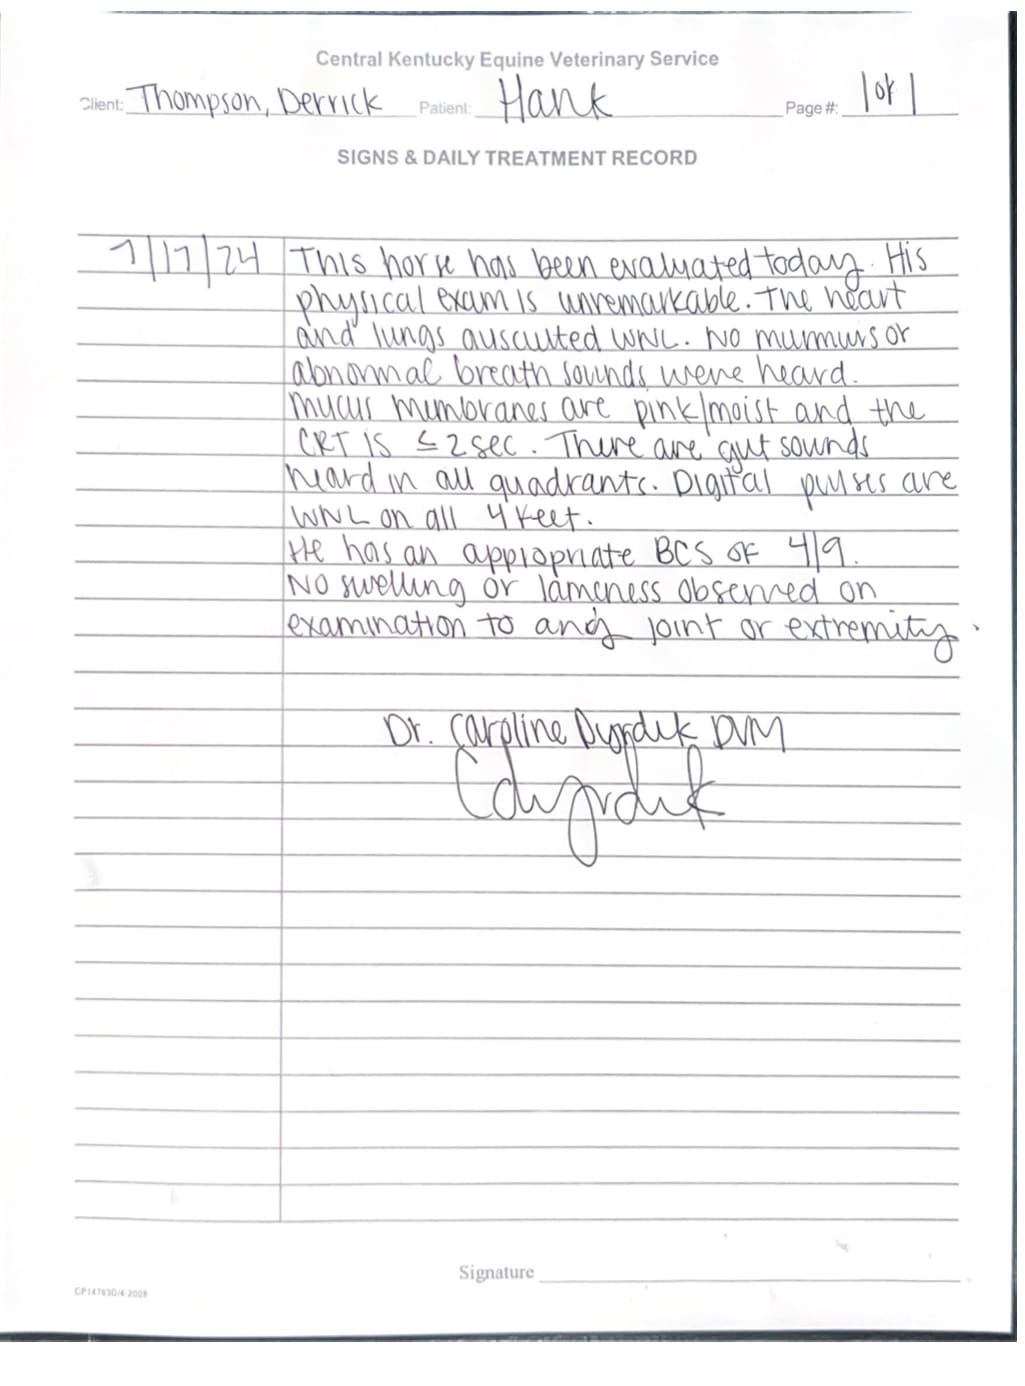 Central Kentucky Equine Veterinary Service
Client: Thompson, Derrick Patient: Hank Page #: 1 of 1
SIGNS & DAILY TREATMENT RECORD
7/17/24 This horse has been evaluated today. His
physical exam is unremarkable. The heart
and lungs ausculted WNL. No murmurs or
abnormal breath sounds were heard.
Mucus membranes are pink/moist and the
CRT is ≤ 2 sec. There are gut sounds
heard in all quadrants. Digital pulses are
WNL on all 4 feet.
He has an appropriate BCS of 4/9.
No swelling or lameness observed on
examination to any joint or extremity.
Dr. Caroline DVM
Signature
CP147630/4-2008